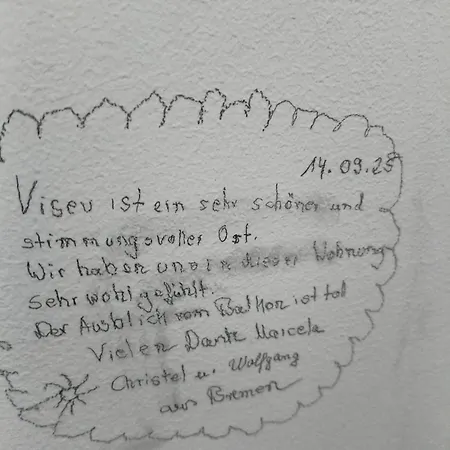 14.09.25
Viseu ist ein sehr schöner und
stimmungsvoller Ort.
Wir haben uns in dieser Wohnung
sehr wohl gefühlt.
Der Ausblick vom Balkon ist tol
Vielen Dank Marcela
Christel u. Wolfgang
aus Bremen